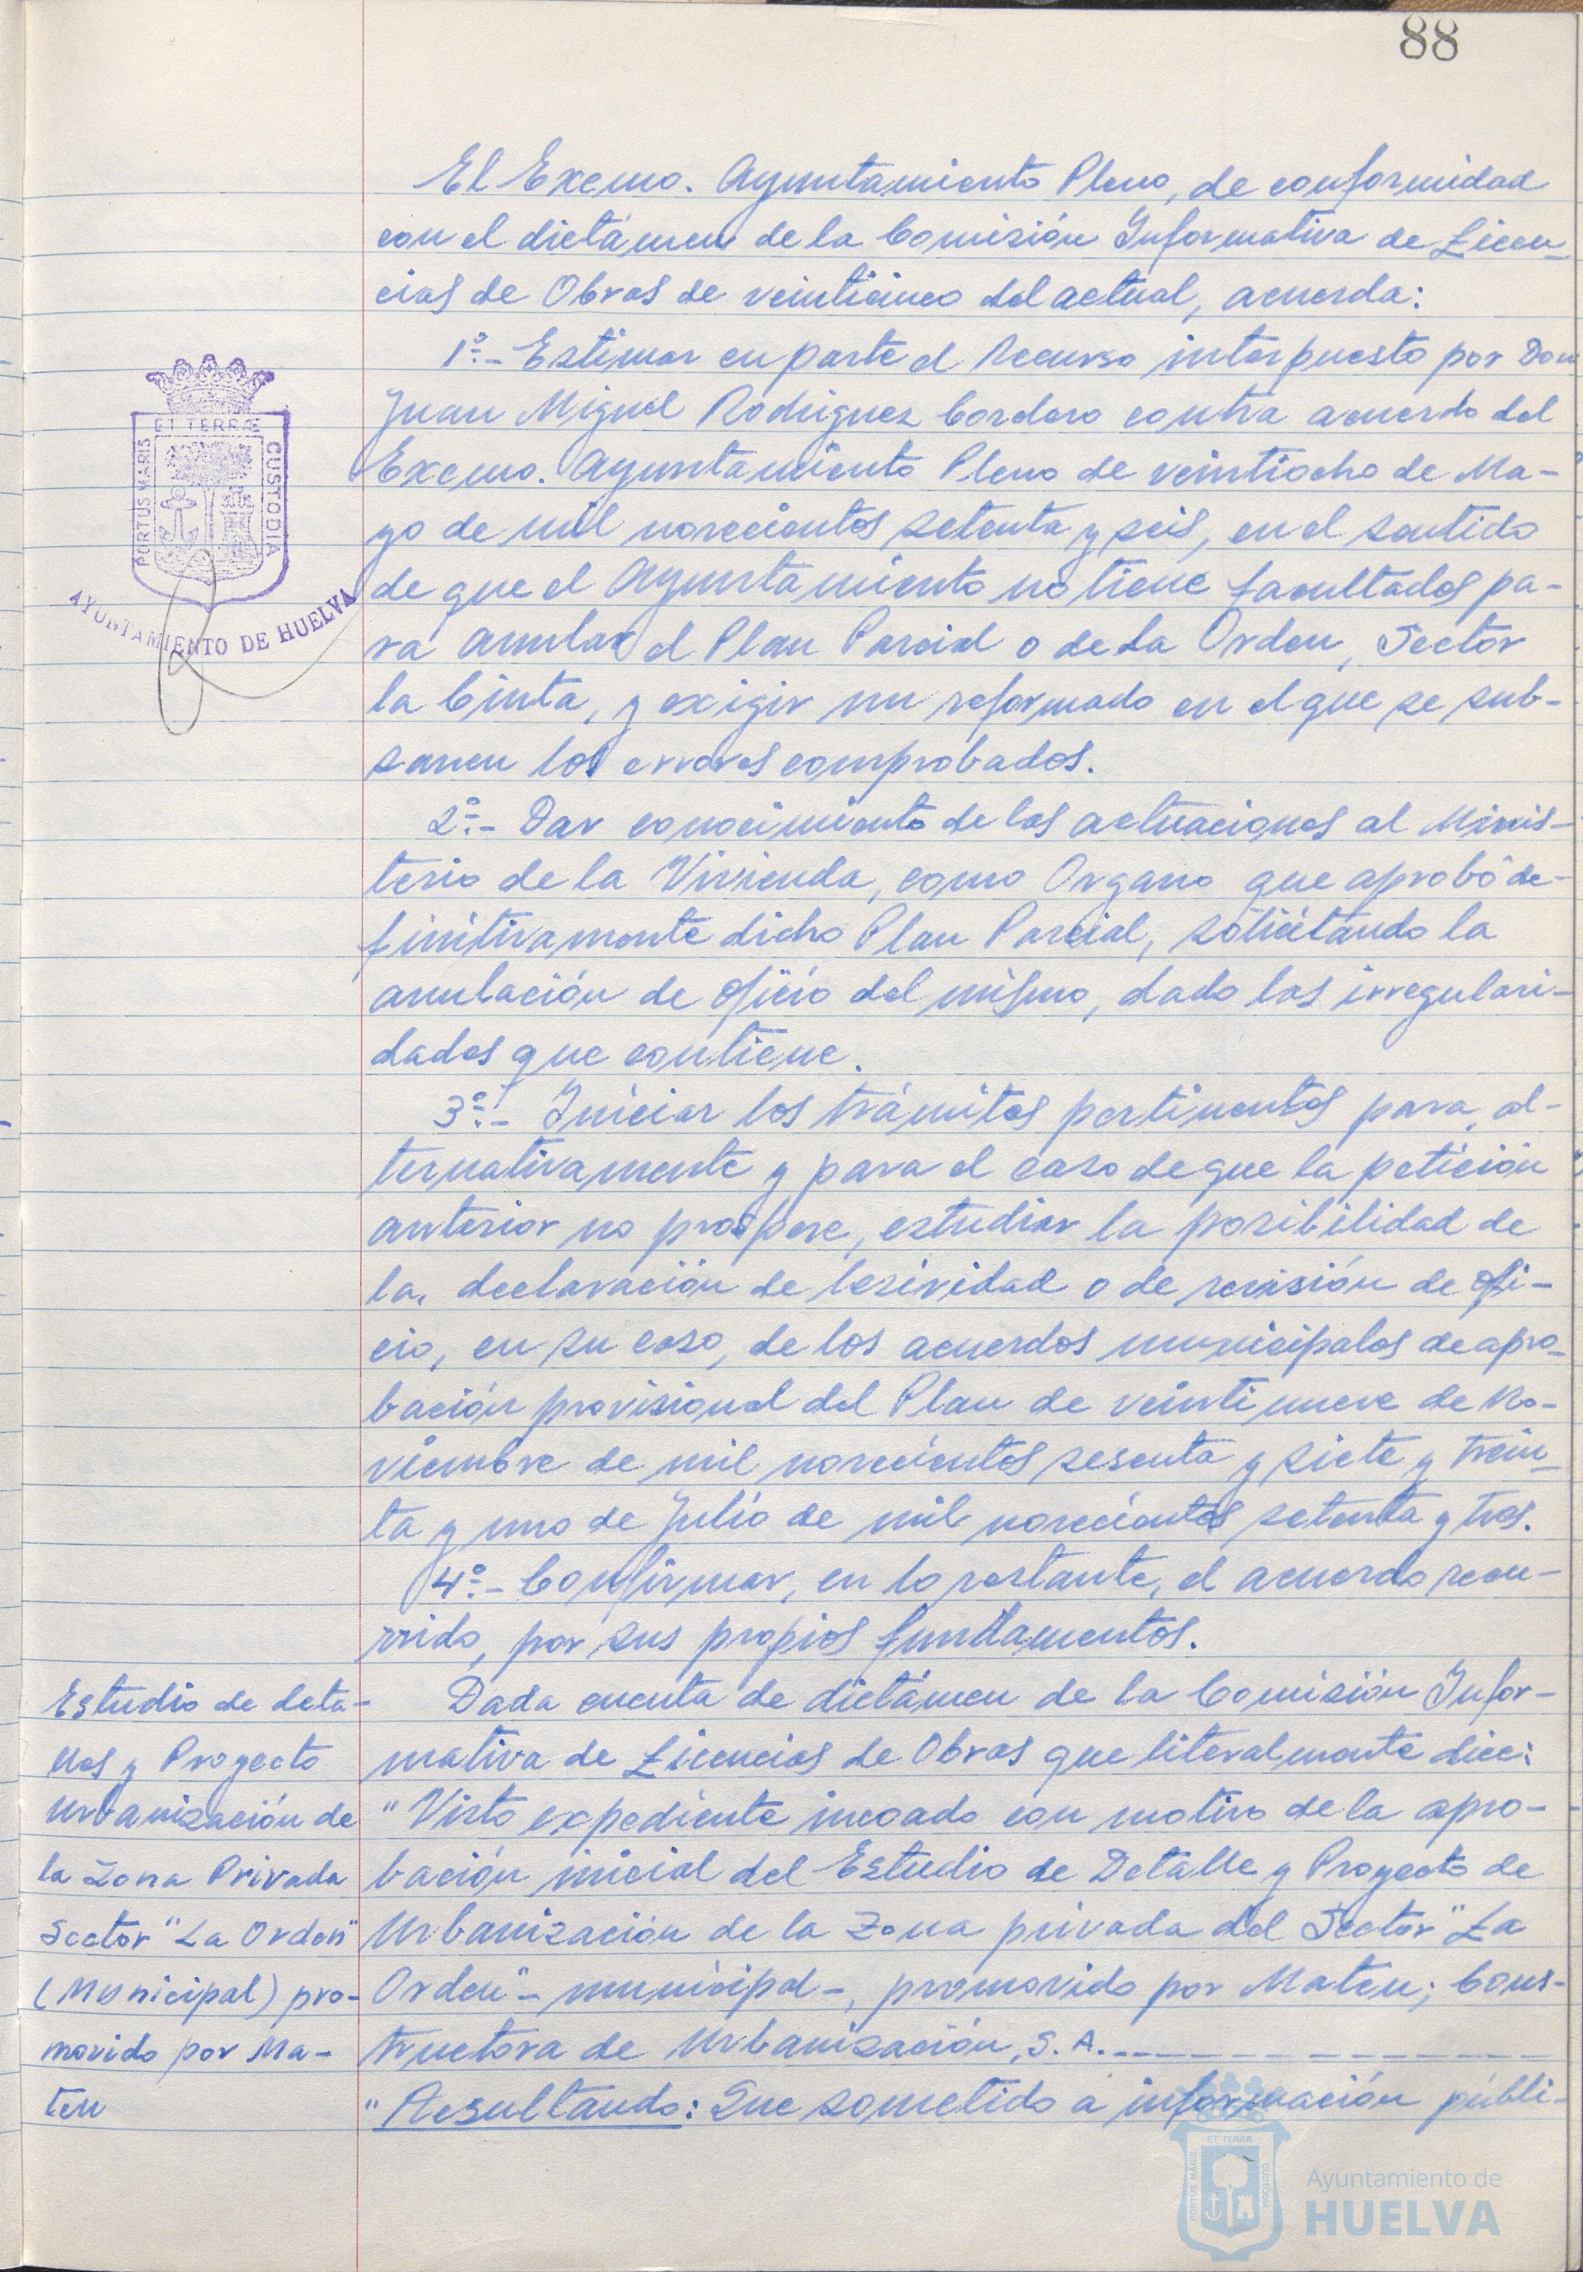 88
El Excmo. Ayuntamiento Pleno, de conformidad
con el dictámen de la Comisión Informativa de Licen-
cias de Obras de veinticinco del actual, acuerda:
1º.- Estimar en parte el recurso interpuesto por Don
Juan Miguel Rodríguez Cordero contra acuerdo del
Excmo. Ayuntamiento Pleno de veintiocho de Ma-
yo de mil novecientos setenta y seis, en el sentido
de que el Ayuntamiento no tiene facultades pa-
ra anular el Plan Parcial o de La Orden, Sector
la Cinta, y exigir un reformado en el que se sub-
sanen los errores comprobados.
2º.- Dar conocimiento de las actuaciones al Minis-
terio de la Vivienda, como Organo que aprobó de-
finitivamente dicho Plan Parcial, solicitando la
anulación de oficio del mismo, dado las irregulari-
dades que contiene.
3º.- Iniciar los trámites pertinentes para, al-
ternativamente y para el caso de que la petición
anterior no prospere, estudiar la posibilidad de
la, declaración de lesividad o de revisión de ofi-
cio, en su caso, de los acuerdos municipales de apro-
bación provisional del Plan de veintinueve de No-
viembre de mil novecientos sesenta y siete y trein-
ta y uno de Julio de mil novecientos setenta y tres.
4º.- Confirmar, en lo restante, el acuerdo recu-
rrido, por sus propios fundamentos.
Estudio de deta-
lles y Proyecto
Urbanización de
la Zona Privada
Sector "La Orden"
(Municipal) pro-
movido por Ma-
teu
Dada cuenta de dictámen de la Comisión Infor-
mativa de Licencias de Obras que literalmente dice:
"Visto expediente incoado con motivo de la apro-
bación inicial del Estudio de Detalle y Proyecto de
Urbanización de la Zona privada del Sector "La
Orden" - municipal -, promovido por Mateu; Cons-
tructora de Urbanización, S.A.
"Resultando: Que sometido a información públi-
PORTUS MARIS
ET TERRÆ
CUSTODIA
AYUNTAMIENTO DE HUELVA
PORTUS MARIS
ET TERRÆ
CUSTODIA
Ayuntamiento de
HUELVA